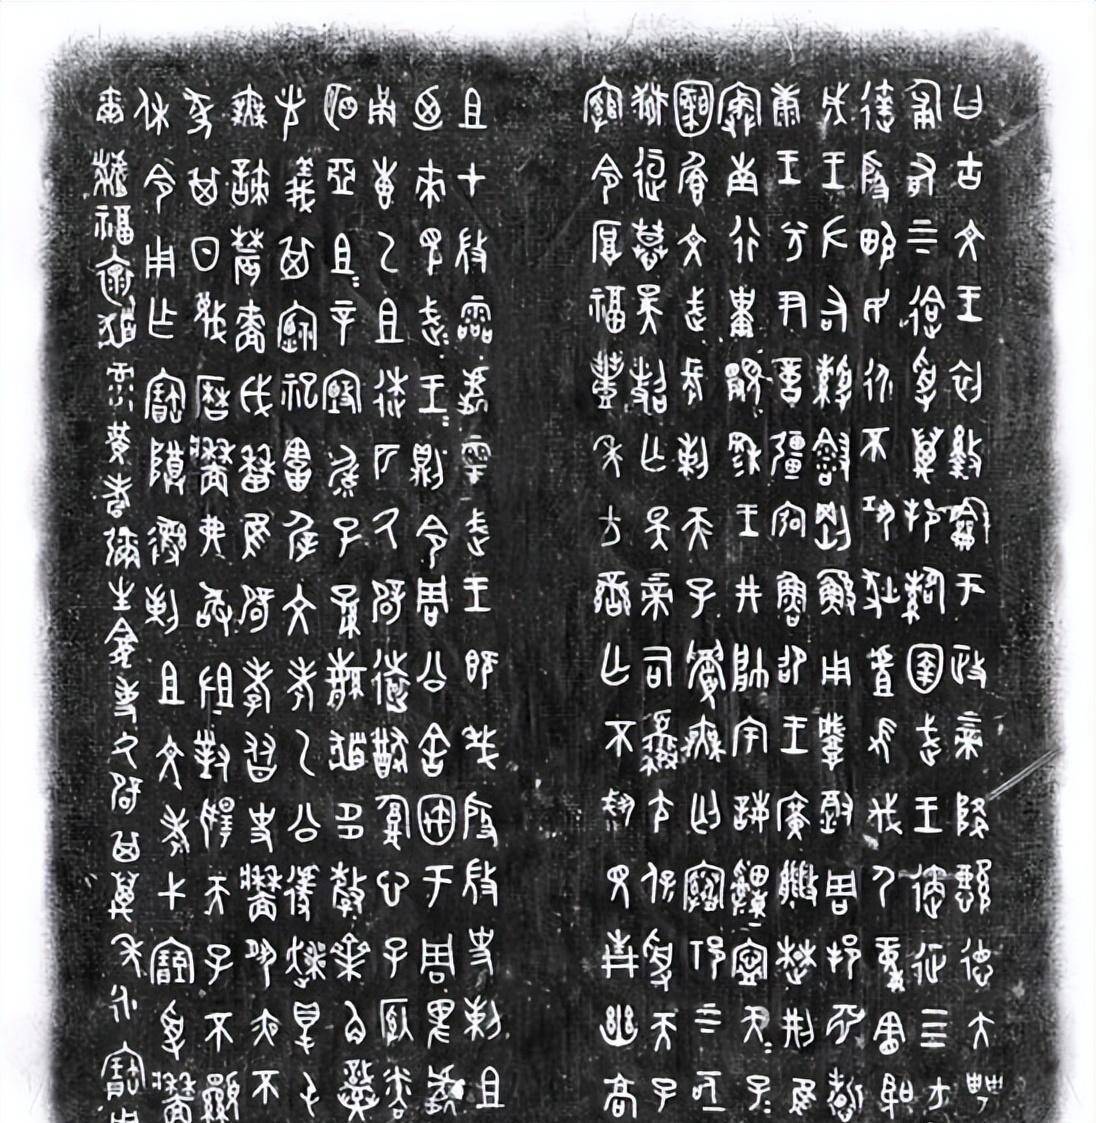 曰古文王初𢿛龢于政上帝降懿德大甹
匍有上下迨受萬邦𩰫圉武王遹征四方
達殷畯民永不巩狄虘髟伐尸童憲聖
成王左右綬會剛鯀用肇徹周邦淵哲
康王兮尹億疆宖魯卲王廣能楚荊隹
寏南行祗顯穆王井帥宇誨申寧天子=
文武長剌天子眉無匄祁上下亟
獄逗慕昊照亡斁上帝司夒尢保受天子
綰令厚福豐年方蠻亡不𢦚見青幽高
且才微靈處雩武王既𢦚殷微史剌且
迺來見武王=則令周公舍宇于周卑處
甬叀乙且逨匹氒辟遠猷腹心子納粦
明亞且=辛毓子孫繁祓多釐齊角熾
光義其禋祀害屖文考乙公遽爽得屯
無諫農穡戉曆隹辟孝友史牆夙夜不
墜其日蔑曆牆弗敢沮對揚天子丕顯
休令用乍寶尊彝剌且文考弋受牆
爾福懷祿黃耇彌生龕事氒辟其萬年永寶用